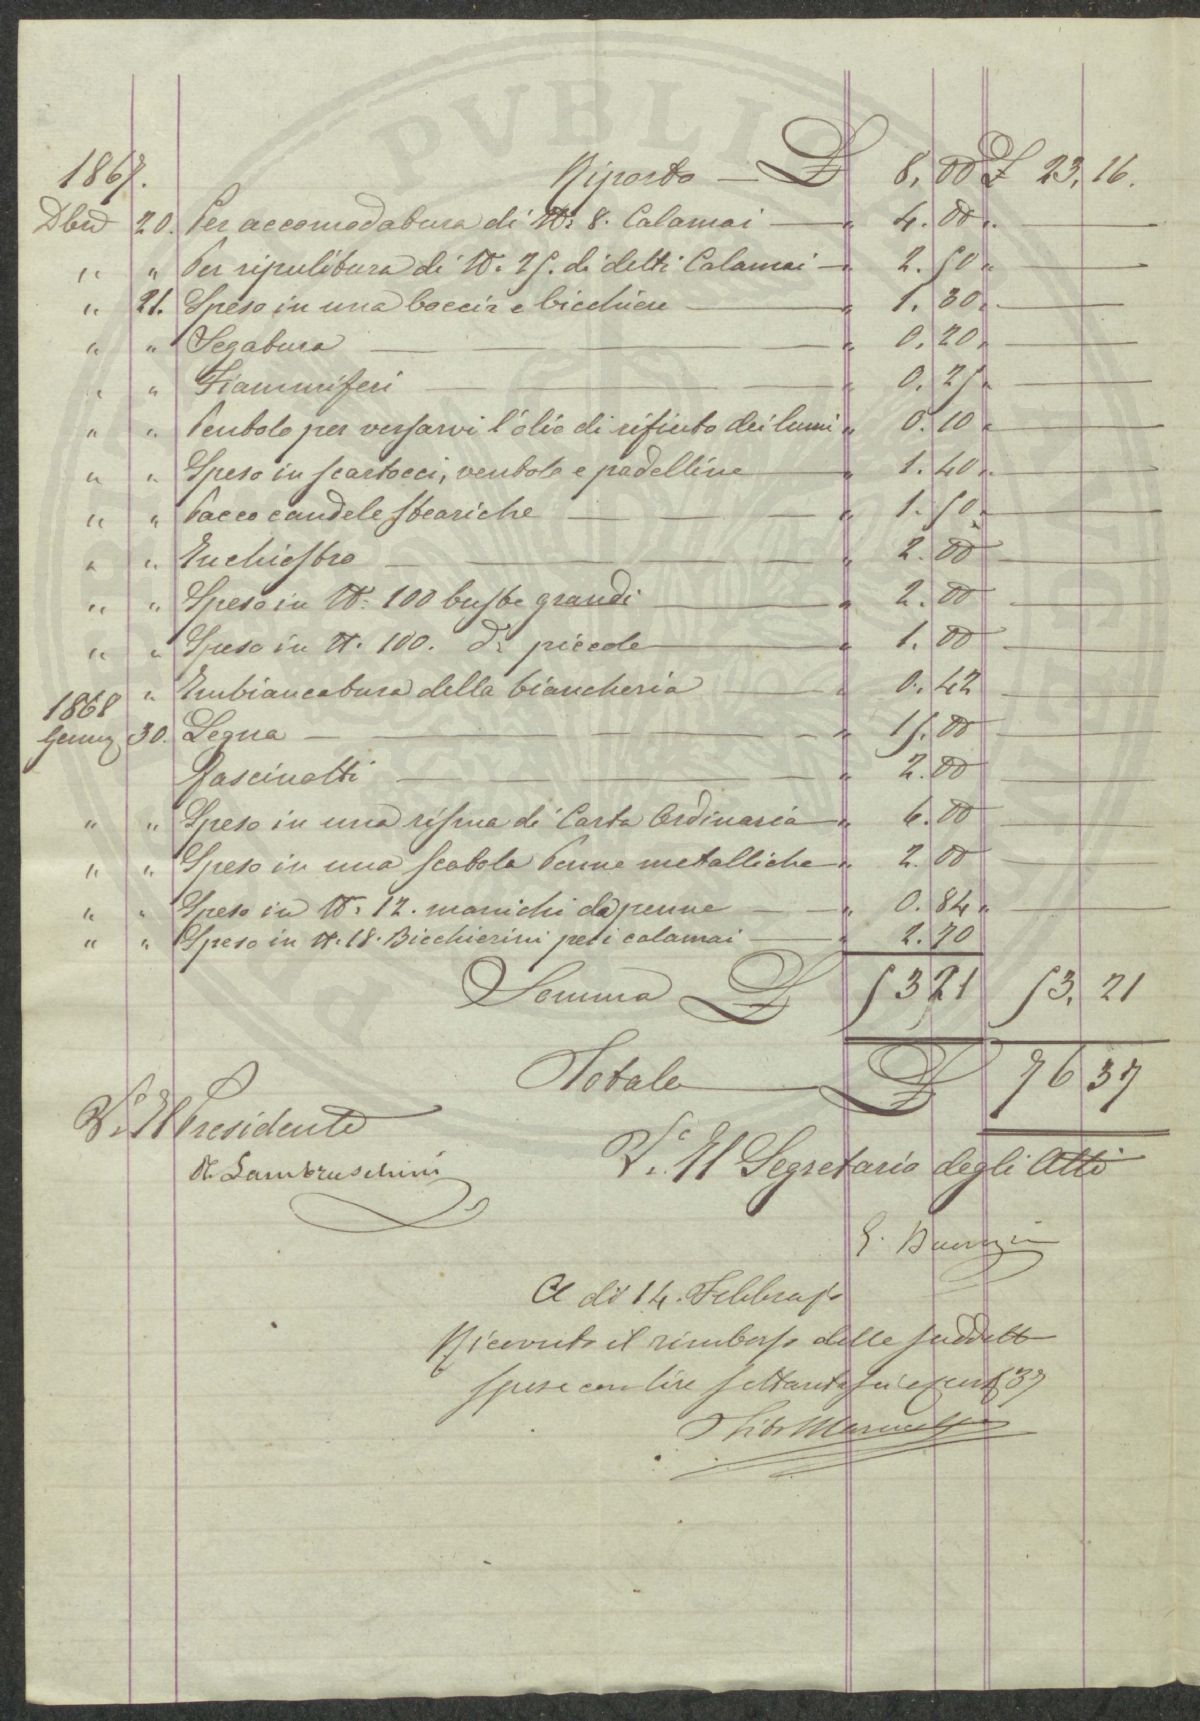 PVBLI
1867. Riporto — £ 8, 00 £ 23, 16.
Dbre 20. Per accomodatura di N: 8. Calamai — " 4. 00 "
" " Per ripulitura di N. 25. di detti Calamai — " 2. 50 "
" 21. Spesa in una boccia e bicchiere — " 1. 30 "
" " Segatura — " 0. 20 "
" " Fiammiferi — " 0. 25 "
" " Pentola per versarvi l'olio di rifiuto dei lumi " 0. 10 "
" " Spesa in scartocci, ventola e padelline — " 1. 40 "
" " Pacco candele steariche — " 1. 50 "
" " Inchiostro — " 2. 00
" " Spesa in N: 100 buste grandi — " 2. 00
" " Spesa in N. 100. d: piccole — " 1. 00
" Imbiancatura della biancheria — " 0. 42
1868
Genn 30. Legna — " 15. 00
Fascinotti — " 2. 00
" " Spesa in una risma di Carta Ordinaria — " 6. 00
" " Spesa in una scatola Penne metalliche — " 2. 00
" " Spesa in N: 12. manichi da penne — " 0. 84 "
" " Spesa in N. 18. Bicchierini per i calamai — " 2. 70
Somma £ 53 21 53, 21
Totale — £ 76 37
V° Il Presidente
R. Lambruschini
V° Il Segretario degli Atti
A di 14. Febbrajo
Ricevuto il rimborso delle suddette
spese con lire settantasei e cent 37